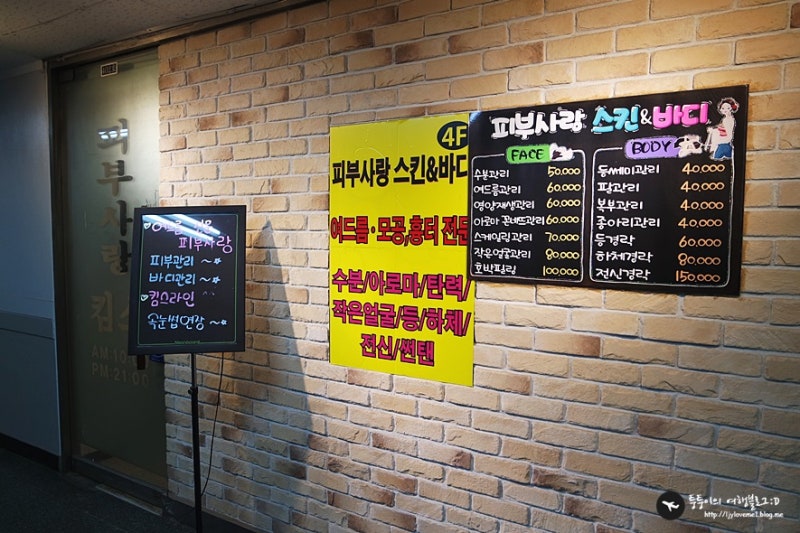 피부사랑
AM:10
PM:21:00
피부사랑
피부관리 ~
바디관리 ~
킴스라인
속눈썹연장 ~
4F
피부사랑 스킨&바디
여드름·모공,흉터 전문
수분/아로마/탄력/
작은얼굴/등/하체/
전신/썬탠
피부사랑 스킨&바디
FACE
수분관리 50,000
여드름관리 60,000
영양재생관리 60,000
아로마 꼰네뜨관리 60,000
스케일링관리 70,000
작은얼굴관리 80,000
호박필링 100,000
BODY
등쎄미관리 40,000
팔관리 40,000
복부관리 40,000
종아리관리 40,000
등경락 60,000
하체경락 80,000
전신경락 150,000
퉁퉁이의 여행블로그:D
http://ljylovemel.blog.me